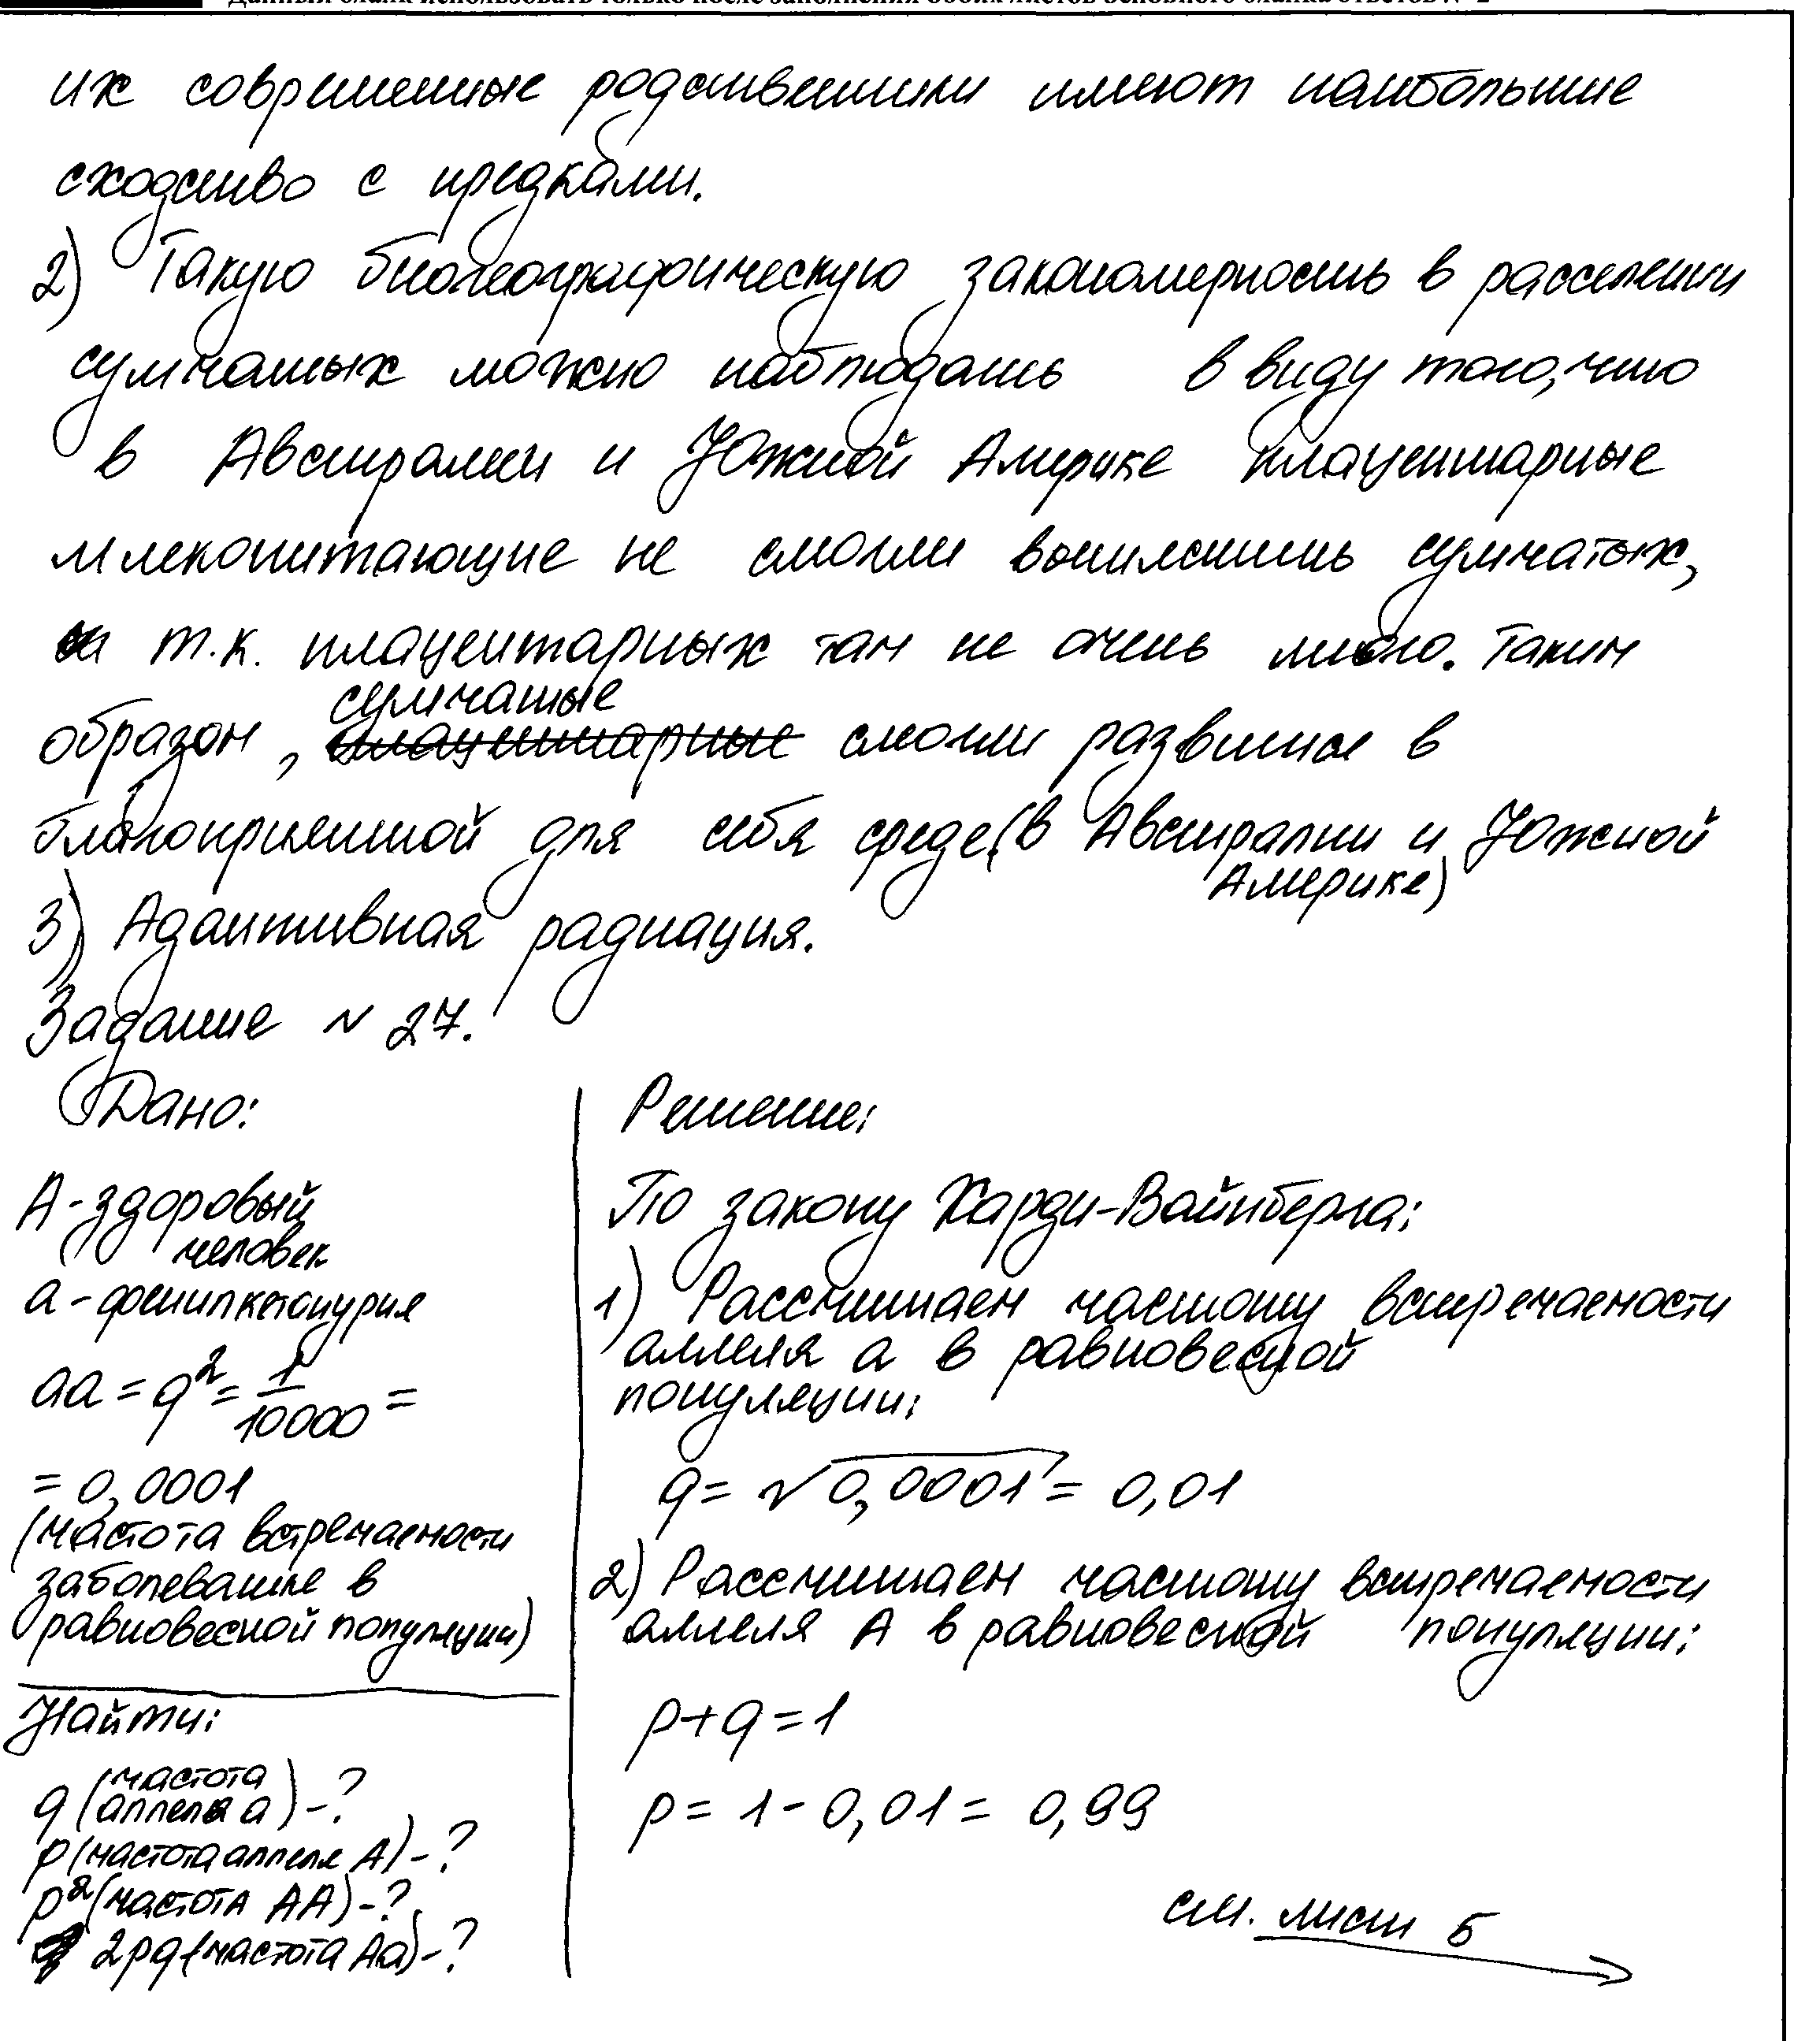 Данный бланк использовать только после заполнения обоих листов основного бланка ответов № 2
их современные родственники имеют наибольшие
сходство с предками.
2) Такую биогеографическую закономерность в расселении
сумчатых можно наблюдать в виду того, что
в Австралии и Южной Америке плацентарные
млекопитающие не смогли вытеснить сумчатых,
т.к. плацентарных там не очень много. Таким
сумчатые
образом, плацентарные смогли развится в
благоприятной для себя среде (в Австралии и Южной
Америке)
3) Адаптивная радиация.
Задание № 27.
Дано:
А - здоровый
человек
а - фенилкетонурия
аа = q² = 1/10000 =
= 0,0001
(частота встречаемости
заболевание в
равновесной популяции)
Найти:
q (частота
аллеля а) - ?
p (частота аллеля А) - ?
p² (частота АА) - ?
2pq (частота Аа) - ?
Решение:
По закону Харди-Вайнберга:
1) Рассчитаем частоту встречаемости
аллеля а в равновесной
популяции:
q = √0,0001 = 0,01
2) Рассчитаем частоту встречаемости
аллеля А в равновесной популяции:
p + q = 1
p = 1 - 0,01 = 0,99
см. лист 5